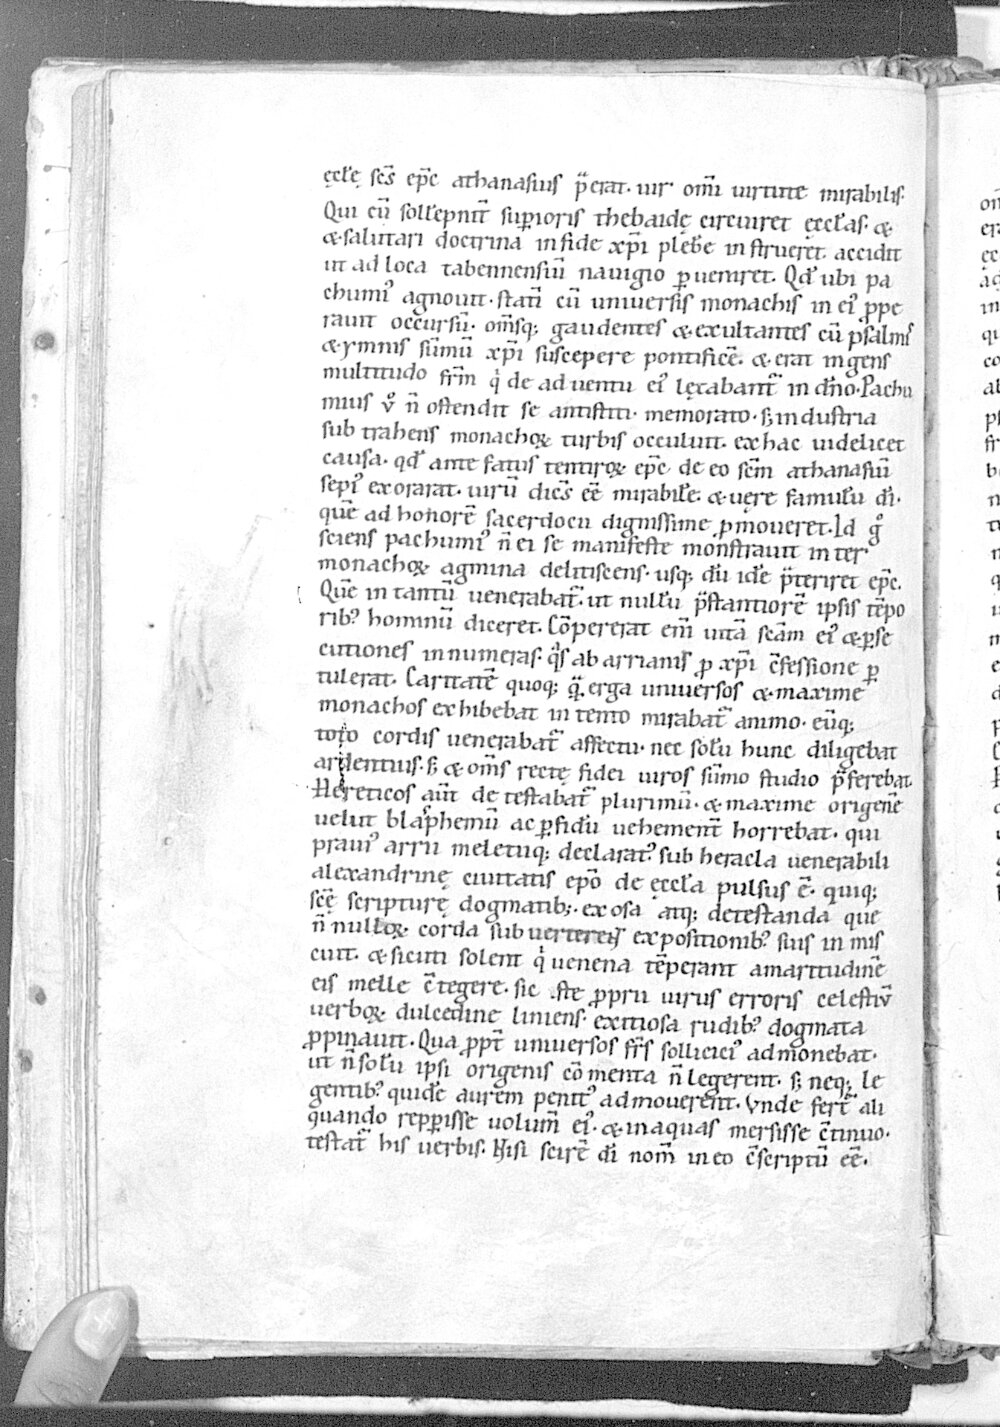 ęcl̄ę sc̄s ep̄c athanasius p̄erat. uir om̄i uirtute mirabilis.
Qui cū sollēpnit̄ sup̱ioris thebaidę circuiret ęccl̄as. &
& salutari doctrina in fide xp̄i plēbe instrueret. accidit
ut ad loca tabennensiū nauigio p̱ueniret. Qd̄ ubi pa
chumiꝰ agnouit. stati cū uniuersis monachis in eiꝰ ꝓpe
rauit occursū. om̄sq; gaudentes & exultantes cū psalmis
& ymnis sūmū xp̄i suscepere pontificē. & erat ingens
multitudo fr̄m qͥ de aduentu eiꝰ lętabant̄ in dn̄o. Pachu
mius ů n̄ ostendit se antistiti memorato. s; industria
subtrahens monachoꝝ turbis occuluit. ex hac uidelicet
causa. qd̄ ante fatus tentiroꝝ ep̄c de eo scm̄ athanasiū
sepiꝰ exorarat. uirū dicēs eē mirabilē. & uere famulū dī.
quē ad honorē sacerdocii dignissime ꝓmoueret. Id gͦ
sciens pachumiꝰ n̄ ei se manifeste monstrauit inter
monachoꝝ agmina delitiscens. usq; dū idē p̄teriret ep̄c.
Quē in tantū uenerabat̄. ut nullū p̄stantiorē ipsis tēpo
ribꝰ hominū diceret. Cōpererat em̄ uitā scām eiꝰ & p̱se
cutiones innumeras. qͦs ab arrianis ꝓ xp̄i c̄fessione p̱
tulerat. Caritatē quoq; q̄ erga uniuersos & maxime
monachos exhibebat intento mirabat̄ animo. eūq;
toto cordis uenerabat̄ affectu. nec solū hunc diligebat
ardentius. s; & om̄s rectę fidei uiros sūmo studio p̄ferebat.
Hereticos aūt detestabat̄ plurimū. & maxime origenē
uelut blasphemū ac p̱fidū uehement̄ horrebat. qui
prauiꝰ arrii meletiiq; declaratꝰ. sub heracla uenerabili
alexandrinę ciuitatis ep̄o de ęccl̄a pulsus ē. quiq;
scę̄ scripturę dogmatib; exosa atq; detestanda que
n̄nulloꝝ corda subuerterent expositionibꝰ suis inmis
cuit. & sicuti solent qͥ uenena tēperant amaritudinē
eis melle c̄tegere. sic iste ꝓprii uirus erroris celestiū
uerboꝝ dulcedine liniens. exitiosa rudibꝰ dogmata
ꝓpinauit. Qua ꝓpt̄ uniuersos fr̄s solliciciꝰ admonebat.
ut n̄ solū ipsi origenis cōmenta n̄ legerent. s; neq; le
gentibꝰ quidē aurem penitꝰ admouerent. Vnde fert̄ ali
quando repp̱isse uolum̄ eiꝰ. & in aquas mersisse c̄tinuo.
testat̄ his uerbis. Nisi scirē dī nom̄ in eo c̄scriptū eē.